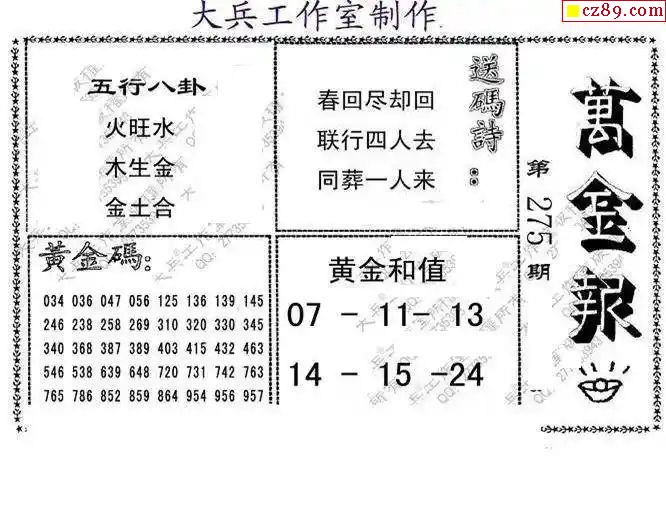 大兵工作室制作.
cz89.com
五行八卦
火旺水
木生金
金土合
送碼詩：
春回尽却回
联行四人去
同葬一人来
萬金報
第275期
黃金碼：
034 036 047 056 125 136 139 145
246 238 258 269 310 320 330 345
340 368 387 389 403 415 432 463
546 538 639 648 720 731 742 763
765 786 852 859 864 954 956 957
黄金和值
07 - 11- 13
14 - 15 -24